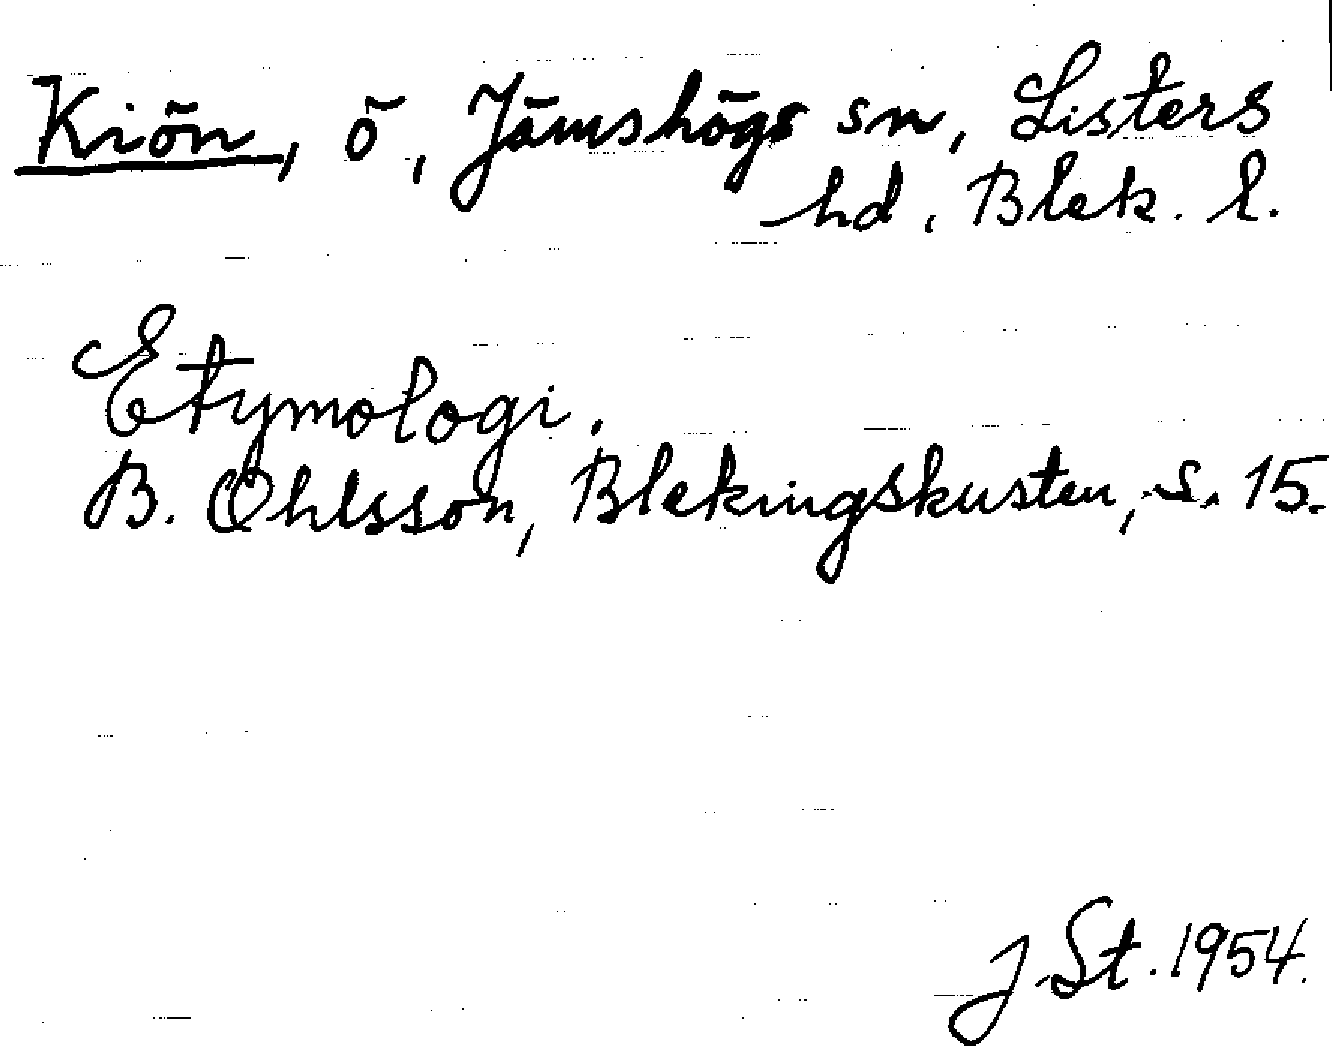 Kiön, ö, Jämshögs sn, Listers
hd, Blek. l.
Etymologi.
B. Ohlsson, Blekingskusten, s. 15.
J. St. 1954.